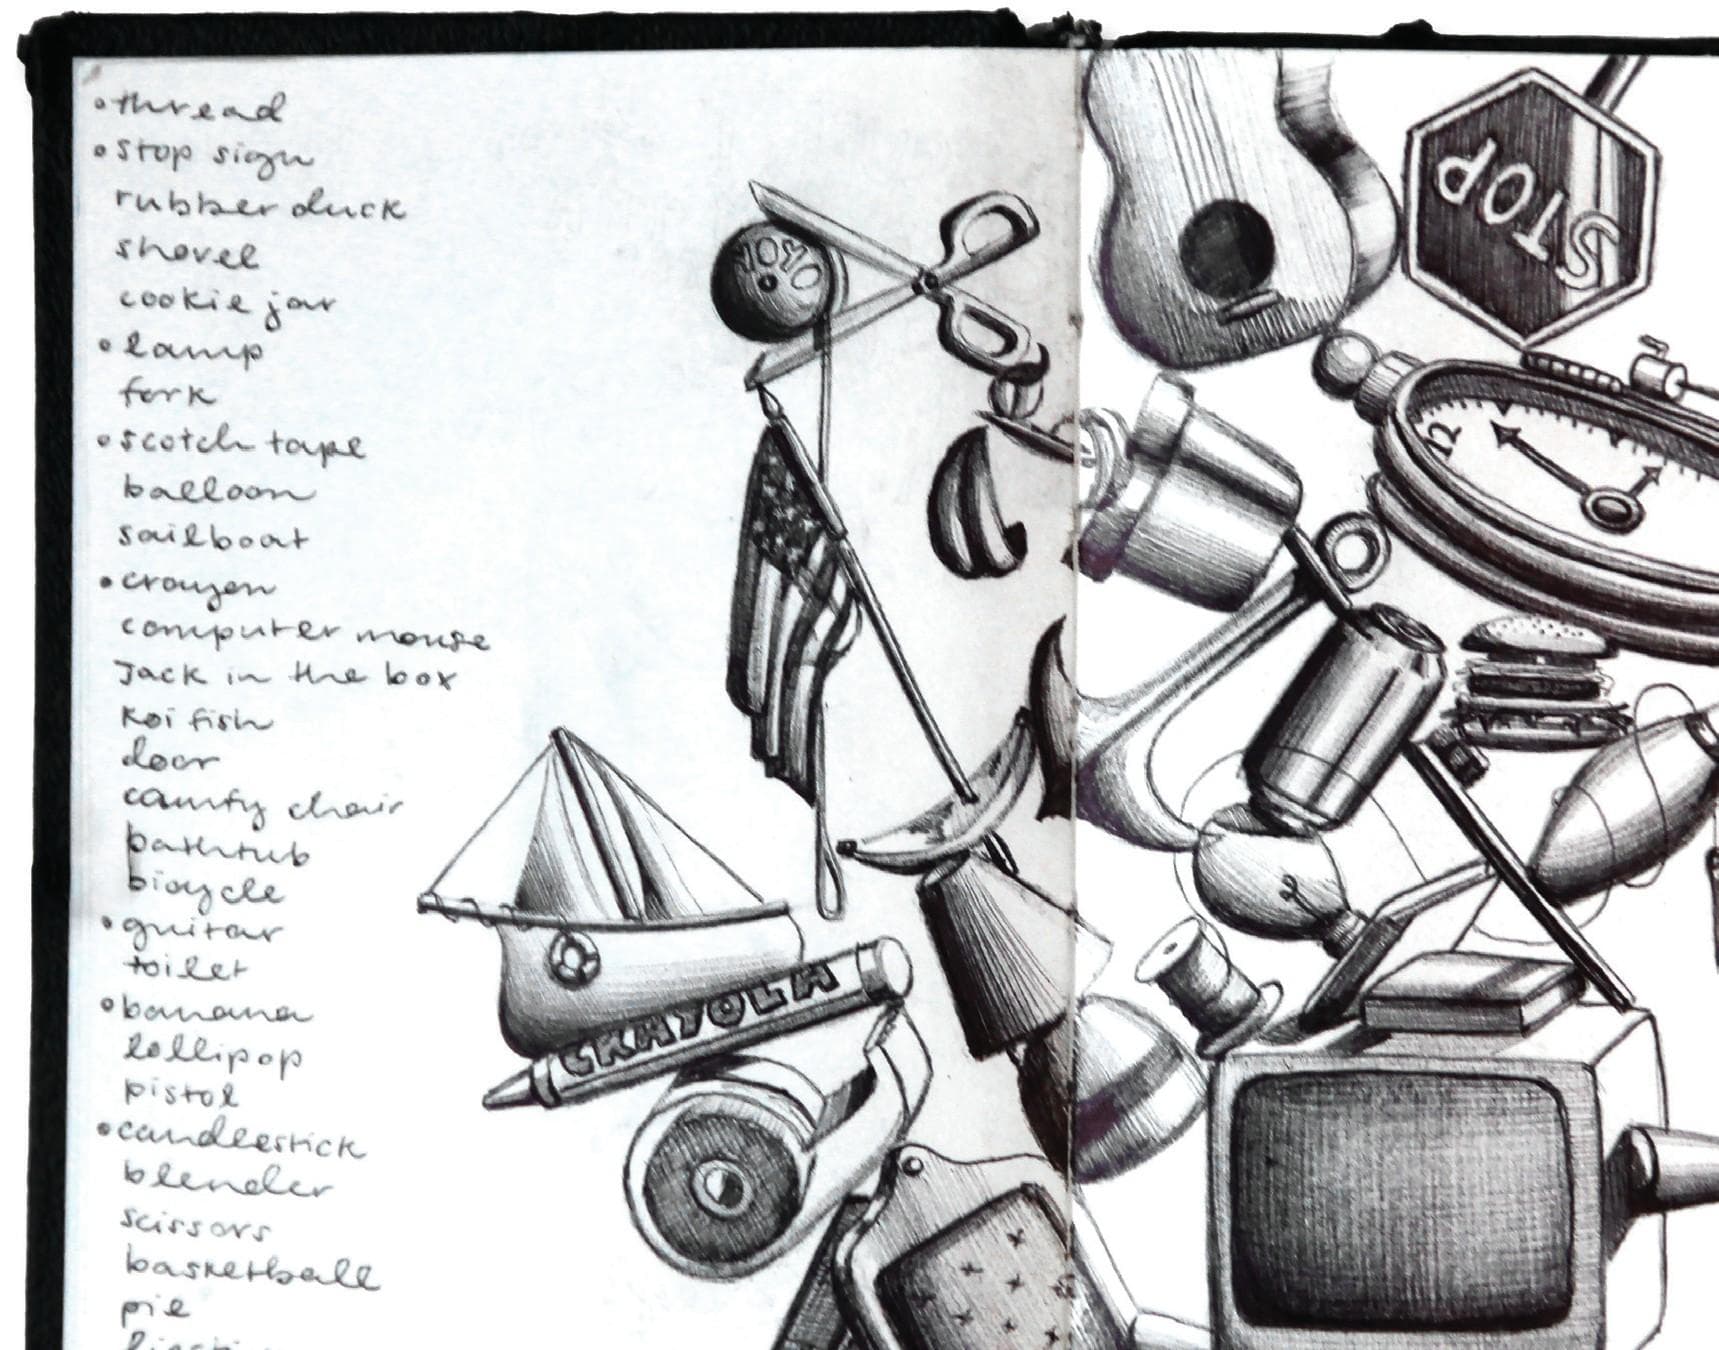 •thread
•stop sign
rubber duck
shovel
cookie jar
•lamp
fork
•scotch tape
balloon
sailboat
•crayon
computer mouse
Jack in the box
Koi fish
door
comfy chair
bathtub
bicycle
•guitar
toilet
•banana
lollipop
pistol
•candlestick
blender
scissors
basketball
pie
YOYO
STOP
12
CRAYOLA